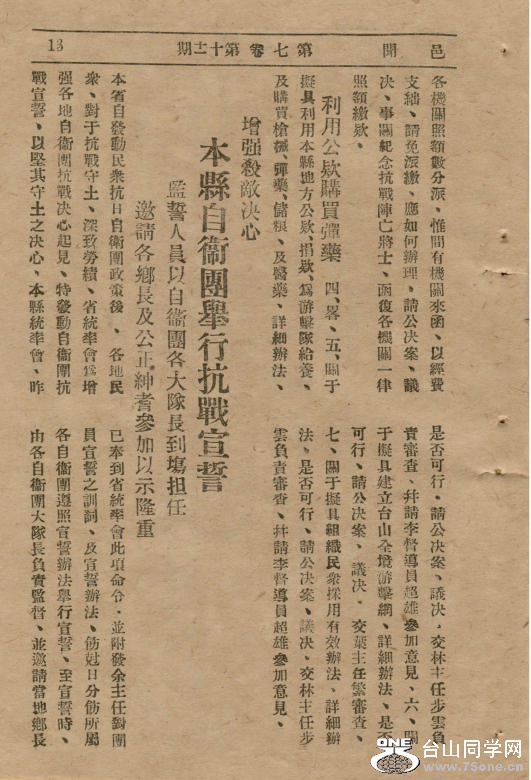 邑聞
第七卷第十二期
13
各機關照額數分派、惟間有機關來函、以經費
支絀、請免派繳、應如何辦理、請公决案、議
决、事關紀念抗戰陣亡將士、函復各機關一律
照額繳欵、
利用公欵購買彈藥
四、畧、五、關于
擬具利用本縣地方公欵、捐欵、爲游擊隊給養、
及購買槍械、彈藥、儲粮、及醫藥、詳細辦法、
是否可行・請公决案、議决・交林主任步雲負
責審查、幷請李督導員超雄參加意見、六、關
于擬具建立台山全境游擊網、詳細辦法、是否
可行、請公决案、議决、交葉主任繁審查、
七、關于擬具組織民衆採用有效辦法、詳細辦
法、是否可行、請公决案、議决、交林主任步
雲負責審查、幷請李督導員超雄參加意見、
增强殺敵决心
本縣自衞團舉行抗戰宣誓
監誓人員以自衞團各大隊長到塲担任
邀請各鄉長及公正紳耆參加以示隆重
本省自發動民衆抗日自衞團政策後、各地民
衆、對于抗戰守土、深致勞績、省統率會爲增
强各地自衞團抗戰决心起見、特發動自衞團抗
戰宣誓、以堅其守土之决心、本縣統率會、昨
已奉到省統率會此項命令・並附發余主任對團
員宣誓之訓詞、及宣誓辦法、飭尅日分飭所屬
各自衞團遵照宣誓辦法舉行宣誓、至宣誓時、
由各自衞團大隊長負責監督、並邀請當地鄉長
ONE
台山同学网
www.75one.cn